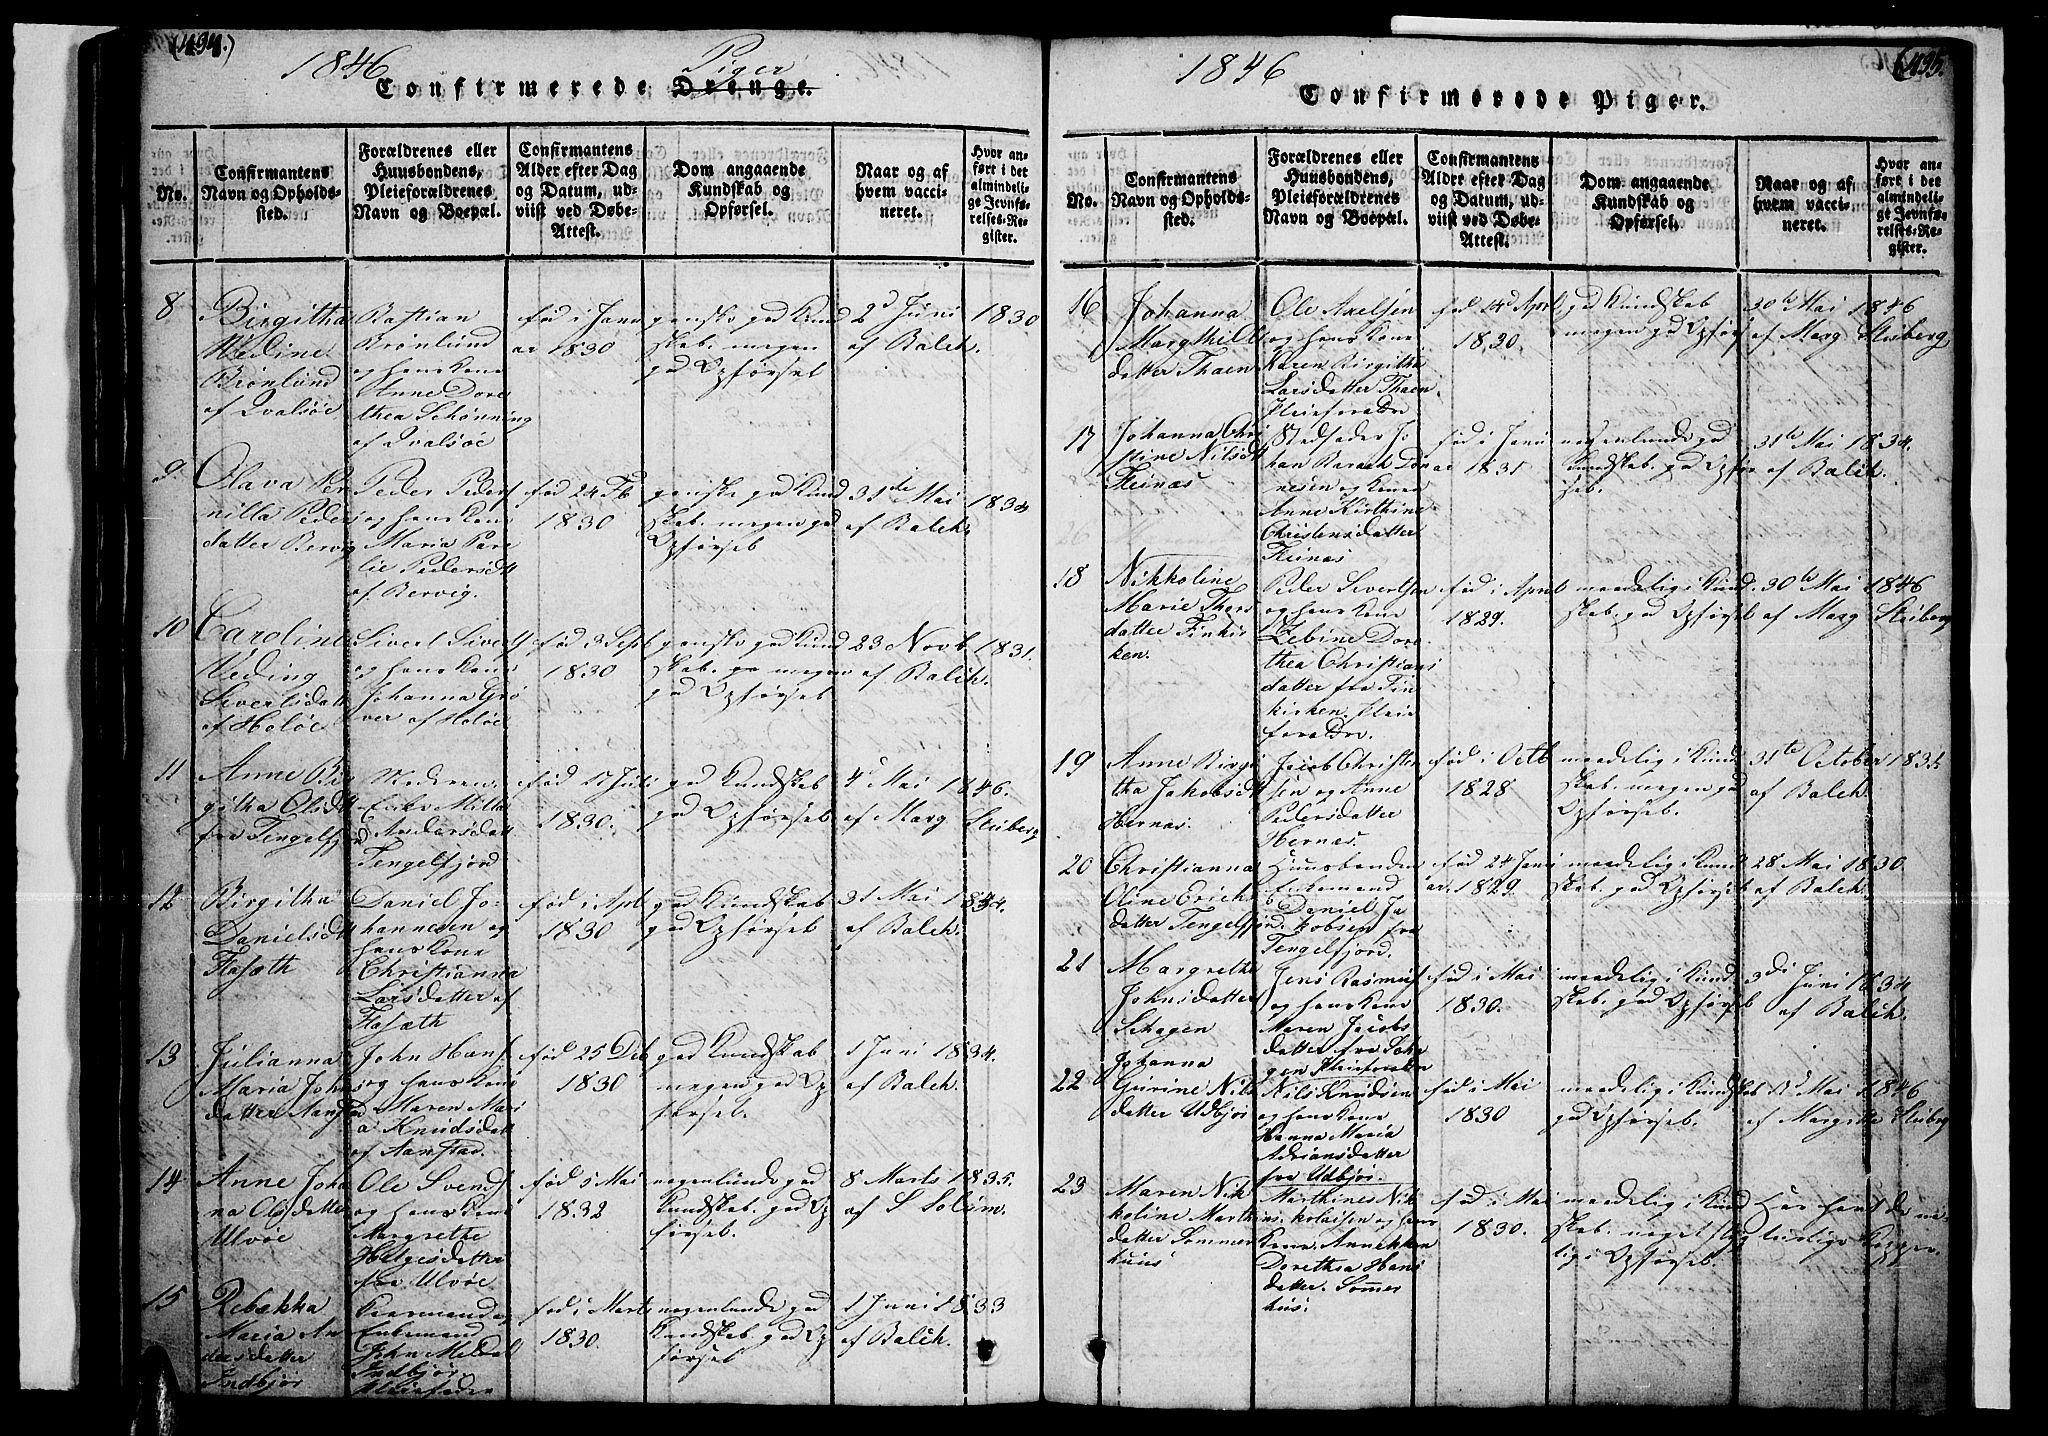 (494.)
1846
Piger
Confirmerede Drenge.
No.
Confirmantens
Navn og Opholds-
sted.
Forældrenes eller
Huusbondens,
Pleieforældrenes
Navn og Boepæl.
Confirmantens
Alder efter Dag
og Datum, ud-
viist ved Døbe-
Attest.
Dom angaaende
Kundskab og
Opførsel.
Naar og af
hvem vacci-
neret.
Hvor an-
ført i det
almindeli-
ge Jevnfø-
relses-Re-
gister.
8
Birgitha
Brønlund
af Qvalsøe
Bastian
Brønlund
og hans Kone
Anne Dore
thea Schønning
af Qvalsøe
fød i Janu
ar 1830
ganske god Kund
skab. megen
god Opførsel
2d Juni 1830
af Balch.
9.
Olava Per
nilla Peders
datter Bervig
Peder Peders
og hans Kone
Maria
Pedersdt
af Bervig.
fød 24 Fb
1830
ganske god Kund
skab. megen god
Opførsel
31te Mai 1834
af Balch.
10
Caroline
Siverlsdatt
af Holøe
Sivert Siverts
og hans Kone
Johanna Grø
ver af Holøe
fød 3 Sept
1830
ganske god Kund
skab. megen
god Opførsel
23 Novb 1831.
af Balch.
11
Anne Bir
githa Olsdt
fra Tengelfjor
Moderen
Enke
Andersdatt
Tengelfjord
fød 17 Juli
1830.
god Kundskab
god Opførsel
4de Mai 1846.
af Marg Stuberg
12
Birgitha
Danielsdt
Flasæth
Daniel Jo-
hannesen og
hans Kone
Christianna
Larsdatter af
Flasæth
fød i Apl
1830
god Kundskab
god Opførsel
31 Mai 1834.
af Balch.
13
Julianna
Maria Johns
datter Aanst
John Hans.
og hans Kone
Maren Mari
a Knudsdatt
af Aanstad.
fød 25 Deb
1830
god Kundskab
megen god Op
førsel.
1 Juni 1834.
af Balch.
14
Anne Joha
na Olsdatter
Ulvøe
Ole Svends
og hans Kone
Margrethe
Helgesdatter
fra Ulvøe
fød 5 Mai
1832
nogenlunde god
Kundskab. god Op
førsel.
8 Marts 1835.
af S Solum.
15
Rebækka
Maria An
dersdatter
Indbjør
Enkemand
John
Indbjør
Pleiefader
fød i Marts
1830.
nogenlunde god
Kundskab. god Op
førsel
1 Juni 1833
af Balch.
(495.
1846
Confirmerede Piger.
No.
Confirmantens
Navn og Opholds-
sted.
Forældrenes eller
Huusbondens,
Pleieforældrenes
Navn og Boepæl.
Confirmantens
Alder efter Dag
og Datum, ud-
viist ved Døbe-
Attest.
Dom angaaende
Kundskab og
Opførsel.
Naar og af
hvem vacci-
neret.
Hvor an-
ført i det
almindeli-
ge Jevnfø-
relses-Re-
gister.
16
Johanna
datter Thaen
Ole Axelsen
og hans Kone
Karen Birgitha
Larsdatter Thaen.
Pleieforældre
fød 14d April
1830.
god Kundskab
megen god Opførs
30te Mai 1846
af Marg Stuberg
17
Johanna Chri
stine Nilsdt
Steinæs
Stedfader Jo
han Barach Dan
nesen og Konen
Anne Kirthine
Christensdatter
Steinæs
fød i Janu
ar 1831
nogenlunde god
Kundskab. god Opfør
sel.
31te Mai 1834.
af Balch.
18
Nikkoline
Marie Thors
datter Finkir
ken.
Peder Sivertsen
og hans Kone
Zebine Dore
thea Christians
datter fra Fin
kirken. Pleie
forældre.
fød i April
1829.
maadelig i Kund
skab. god Opførsel
30te Mai 1846
af Marg Stuberg
19
Anne Birgi
tha Jakobsdt
Hernæs.
Jacob Christen
sen og Anne
Pedersdatter
Hernæs.
fød i Octb
1828
maadelig i Kund
skab. megen god
Opførsel.
31te October 1835
af Balch.
20
Christianna
Oline Erichs
datter Tengelfjor
Huusbonden
Enkemand
Daniel Ja
kobsen fra
Tengelfjord.
fød 24 Janu
ar. 1829.
maadelig i Kund
skab. god Opførsel
28 Mai 1830.
af Balch.
21
Margrethe
Johnsdatter
Schagen
Jens Rasmus
og hans Kone
Maren Jacobs
datter fra Scha
gen Pleieforældre
fød i Mai
1830.
maadelig i Kund
skab. god Opførsel
3di Juni 1834
af Balch.
22
Johanna
Gurine Nils
datter Udbjør
Nils Knudsen
og hans Kone
Hanna Maria
Adriansdatter
fra Udbjør.
fød i Mai
1830
maadelig i Kundskab
god Opførsel.
1d Mai 1846
af Margrete Stuberg
23
Maren Nik
koline Marthinus
datter Sommer
huus
Marthines Nik
kolaisen og hans
Kone Annekken
Dorethia Hans
datter. Sommer
hus.
fød i Mai
1830.
maadelig i Kund
skab. noget
i Opførsel.
har havt de na
turlige Kopper.